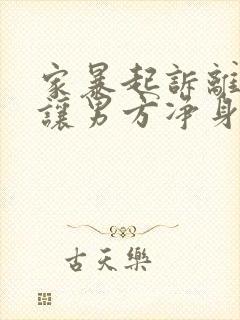 家暴起訴離
讓男方凈身
古天樂